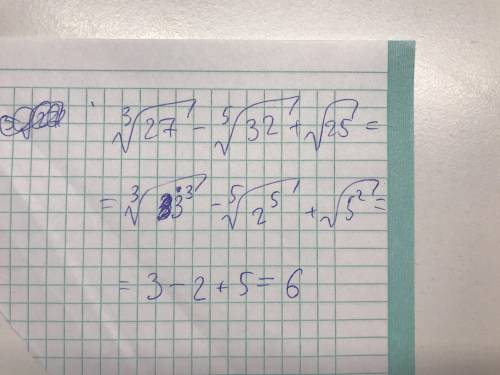 ∛27 - ⁵√32 + √25 =
= ∛3³ - ⁵√2⁵ + √5² =
= 3 - 2 + 5 = 6